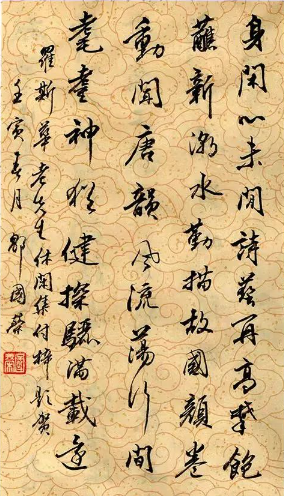 身閑心未閒詩藝再高攀飽
蘸新潮水勤描故國顏卷
動聞唐韻風流蕩行間
耄耋神猶健探驪滿載還
羅斯華老先生休閑集付梓題賀
壬寅春月 國榮